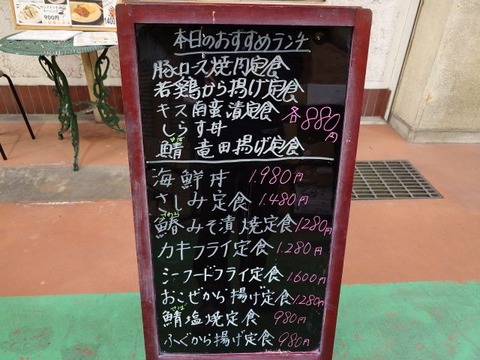 本日のおすすめランチ
豚ロース焼肉定食
若鶏から揚げ定食
キス南蛮漬定食
各880円
しらす丼
さば
鯖 竜田揚げ定食
海鮮丼 1.980円
さしみ定食 1.480円
さわら
鰆みそ漬焼定食 1280円
カキフライ定食 1.280円
シーフードフライ定食 1.600円
おこぜから揚げ定食 1280円
さば
鯖塩焼定食 980円
ふぐから揚げ定食 980円
900円